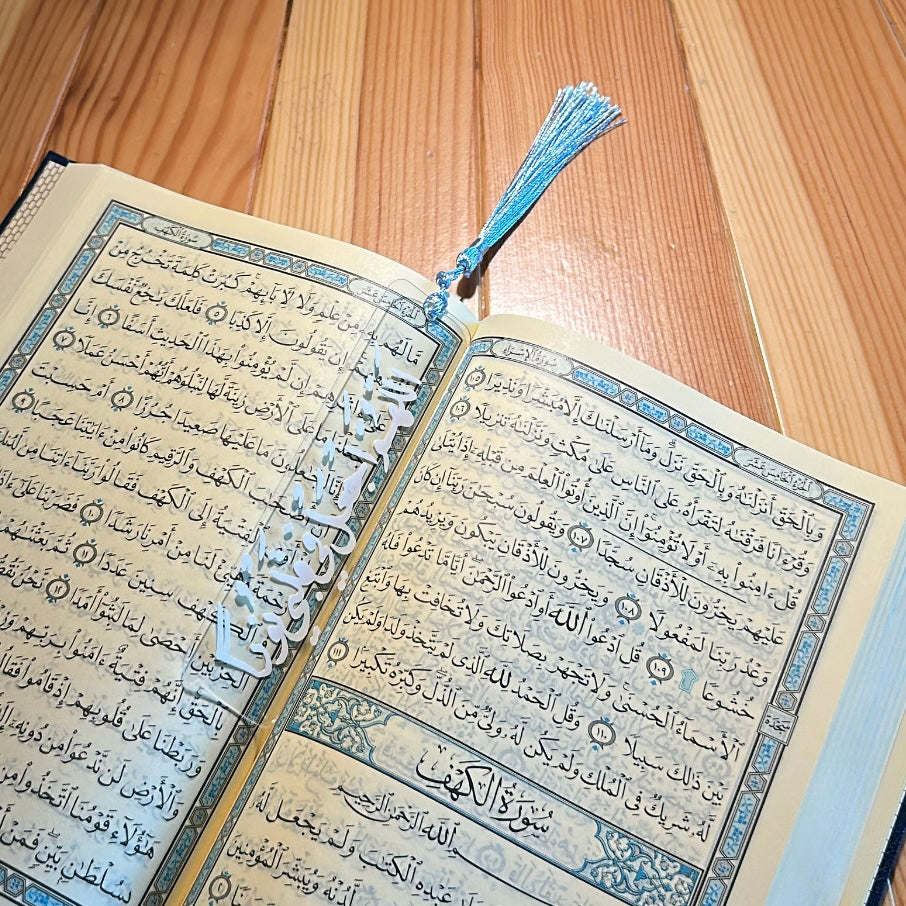 الجُزْءُ الخَامِسَ عَشَرَ
سُورَةُ الإِسْرَاءِ
وَبِٱلْحَقِّ أَنزَلْنَٰهُ وَبِٱلْحَقِّ نَزَلَ وَمَآ أَرْسَلْنَٰكَ إِلَّا مُبَشِّرًا وَنَذِيرًا ١٠٥
وَقُرْءَانًا فَرَقْنَٰهُ لِتَقْرَأَهُۥ عَلَى ٱلنَّاسِ عَلَىٰ مُكْثٍ وَنَزَّلْنَٰهُ تَنزِيلًا ١٠٦
قُلْ ءَامِنُوا۟ بِهِۦٓ أَوْ لَا تُؤْمِنُوٓا۟ إِنَّ ٱلَّذِينَ أُوتُوا۟ ٱلْعِلْمَ مِن قَبْلِهِۦٓ إِذَا يُتْلَىٰ
عَلَيْهِمْ يَخِرُّونَ لِلْأَذْقَانِ سُجَّدًا ١٠٧ وَيَقُولُونَ سُبْحَٰنَ رَبِّنَآ إِن كَانَ
وَعْدُ رَبِّنَا لَمَفْعُولًا ١٠٨ وَيَخِرُّونَ لِلْأَذْقَانِ يَبْكُونَ وَيَزِيدُهُمْ
خُشُوعًا ۩ ١٠٩ قُلِ ٱدْعُوا۟ ٱللَّهَ أَوِ ٱدْعُوا۟ ٱلرَّحْمَٰنَ أَيًّا مَّا تَدْعُوا۟ فَلَهُ
ٱلْأَسْمَآءُ ٱلْحُسْنَىٰ وَلَا تَجْهَرْ بِصَلَاتِكَ وَلَا تُخَافِتْ بِهَا وَٱبْتَغِ
بَيْنَ ذَٰلِكَ سَبِيلًا ١١٠ وَقُلِ ٱلْحَمْدُ لِلَّهِ ٱلَّذِى لَمْ يَتَّخِذْ وَلَدًا وَلَمْ يَكُن
لَّهُۥ شَرِيكٌ فِى ٱلْمُلْكِ وَلَمْ يَكُن لَّهُۥ وَلِىٌّ مِّنَ ٱلذُّلِّ وَكَبِّرْهُ تَكْبِيرًا ١١١
سَجْدَة
سُورَةُ الكَهْفِ
بِسْمِ ٱللَّهِ ٱلرَّحْمَٰنِ ٱلرَّحِيمِ
عَبْدِهِ ٱلْكِتَٰبَ وَلَمْ يَجْعَل لَّهُۥ
لَّدُنْهُ وَيُبَشِّرَ ٱلْمُؤْمِنِينَ
الجُزْءُ الخَامِسَ عَشَرَ
سُورَةُ الكَهْفِ
مَّا لَهُم بِهِۦ مِنْ عِلْمٍ وَلَا لِءَابَآئِهِمْ كَبُرَتْ كَلِمَةً تَخْرُجُ مِنْ
إِن يَقُولُونَ إِلَّا كَذِبًا ٥ فَلَعَلَّكَ بَٰخِعٌ نَّفْسَكَ
إِن لَّمْ يُؤْمِنُوا۟ بِهَٰذَا ٱلْحَدِيثِ أَسَفًا ٦ إِنَّا
عَلَى ٱلْأَرْضِ زِينَةً لَّهَا لِنَبْلُوَهُمْ أَيُّهُمْ أَحْسَنُ عَمَلًا ٧
مَا عَلَيْهَا صَعِيدًا جُرُزًا ٨ أَمْ حَسِبْتَ
ٱلْكَهْفِ وَٱلرَّقِيمِ كَانُوا۟ مِنْ ءَايَٰتِنَا عَجَبًا ٩
ٱلْفِتْيَةُ إِلَى ٱلْكَهْفِ فَقَالُوا۟ رَبَّنَآ ءَاتِنَا مِن لَّدُنكَ
لَنَا مِنْ أَمْرِنَا رَشَدًا ١٠ فَضَرَبْنَا عَلَىٰٓ
ٱلْكَهْفِ سِنِينَ عَدَدًا ١١ ثُمَّ بَعَثْنَٰهُمْ
أَحْصَىٰ لِمَا لَبِثُوٓا۟ أَمَدًا ١٢ نَّحْنُ نَقُصُّ
بِٱلْحَقِّ إِنَّهُمْ فِتْيَةٌ ءَامَنُوا۟ بِرَبِّهِمْ
وَرَبَطْنَا عَلَىٰ قُلُوبِهِمْ إِذْ قَامُوا۟ فَقَالُوا۟
وَٱلْأَرْضِ لَن نَّدْعُوَا۟ مِن دُونِهِۦٓ
هَٰٓؤُلَآءِ قَوْمُنَا ٱتَّخَذُوا۟ مِن
سُلْطَٰنٍۭ بَيِّنٍ فَمَنْ
اللهم اجعل في قلبي نورا